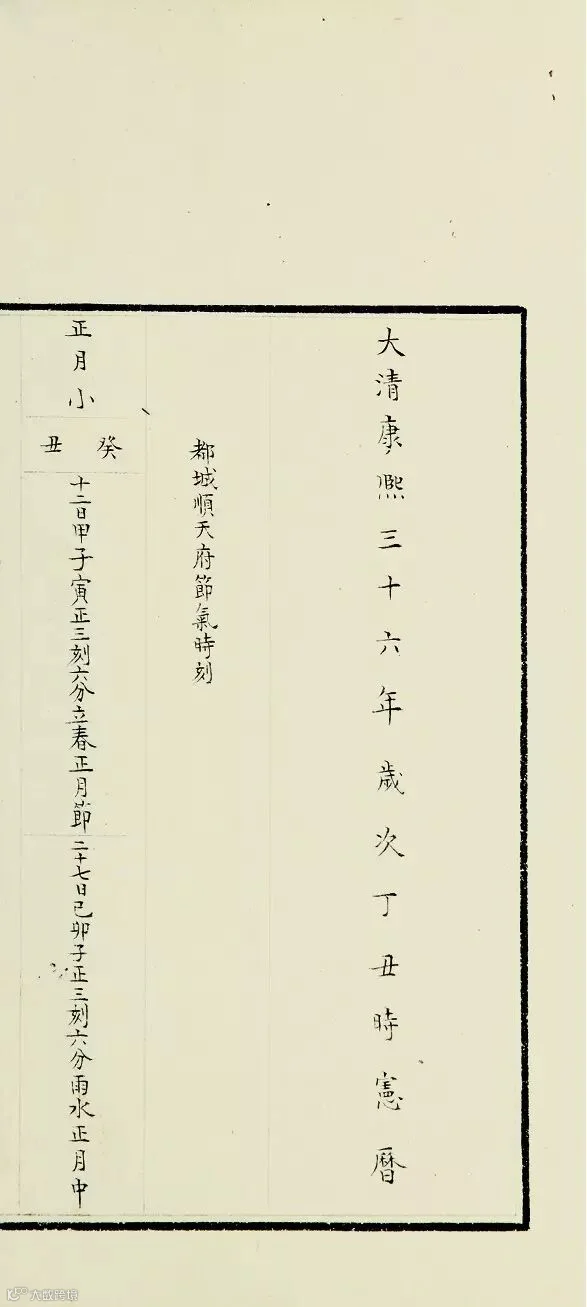 大清康熙三十六年歲次丁丑時憲曆
都城順天府節氣時刻
正月小
癸丑
十二日甲子寅正三刻六分立春正月節
二十七日己卯子正三刻六分雨水正月中
大成跨境